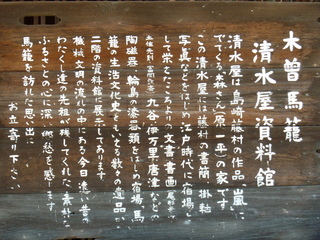 木曽馬籠
清水屋資料館
清水屋は島崎藤村の作品「嵐」に
でてくる「森さん」（原一平）の家です。
この清水屋には藤村の書簡、掛軸、
写真などをはじめ、江戸時代に宿場と
して栄えたころより文書、書画、
九谷、伊万里、唐津などの
陶磁器、輪島の漆器類をはじめ宿場馬
籠の生活文化史ともいえる数々の遺品が
二階の資料館に展示してあります
機械文明の流れの中にある今日、遠い昔の
わたくし達の先祖が残してくれた素朴な
ふるさとの心に深い郷愁を感じます。
馬籠を訪れた思い出に
お立寄り下さい